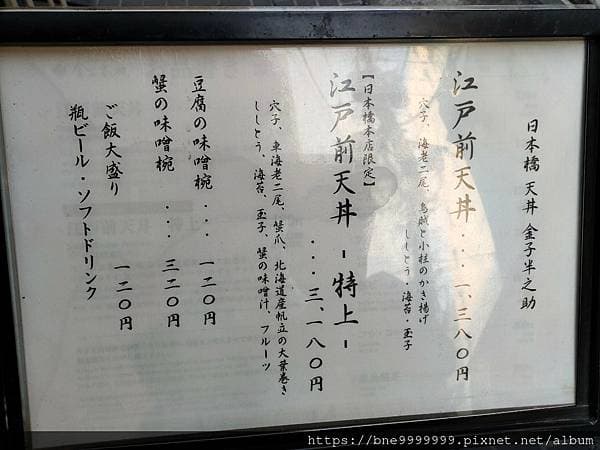 日本橋 天丼 金子半之助
江戸前天丼・・・一、三八〇円
穴子、海老二尾、烏賊と小柱のかき揚げ
ししとう・海苔・玉子
【日本橋本店限定】
江戸前天丼 -特上-
・・・三、一八〇円
穴子、車海老二尾、蟹爪、北海道産帆立の大葉巻き
ししとう、海苔、玉子、蟹の味噌汁、フルーツ
豆腐の味噌椀・・・一二〇円
蟹の味噌椀・・・・三二〇円
ご飯大盛り 一二〇円
瓶ビール・ソフトドリンク
https://bne9999999.pixnet.net/album